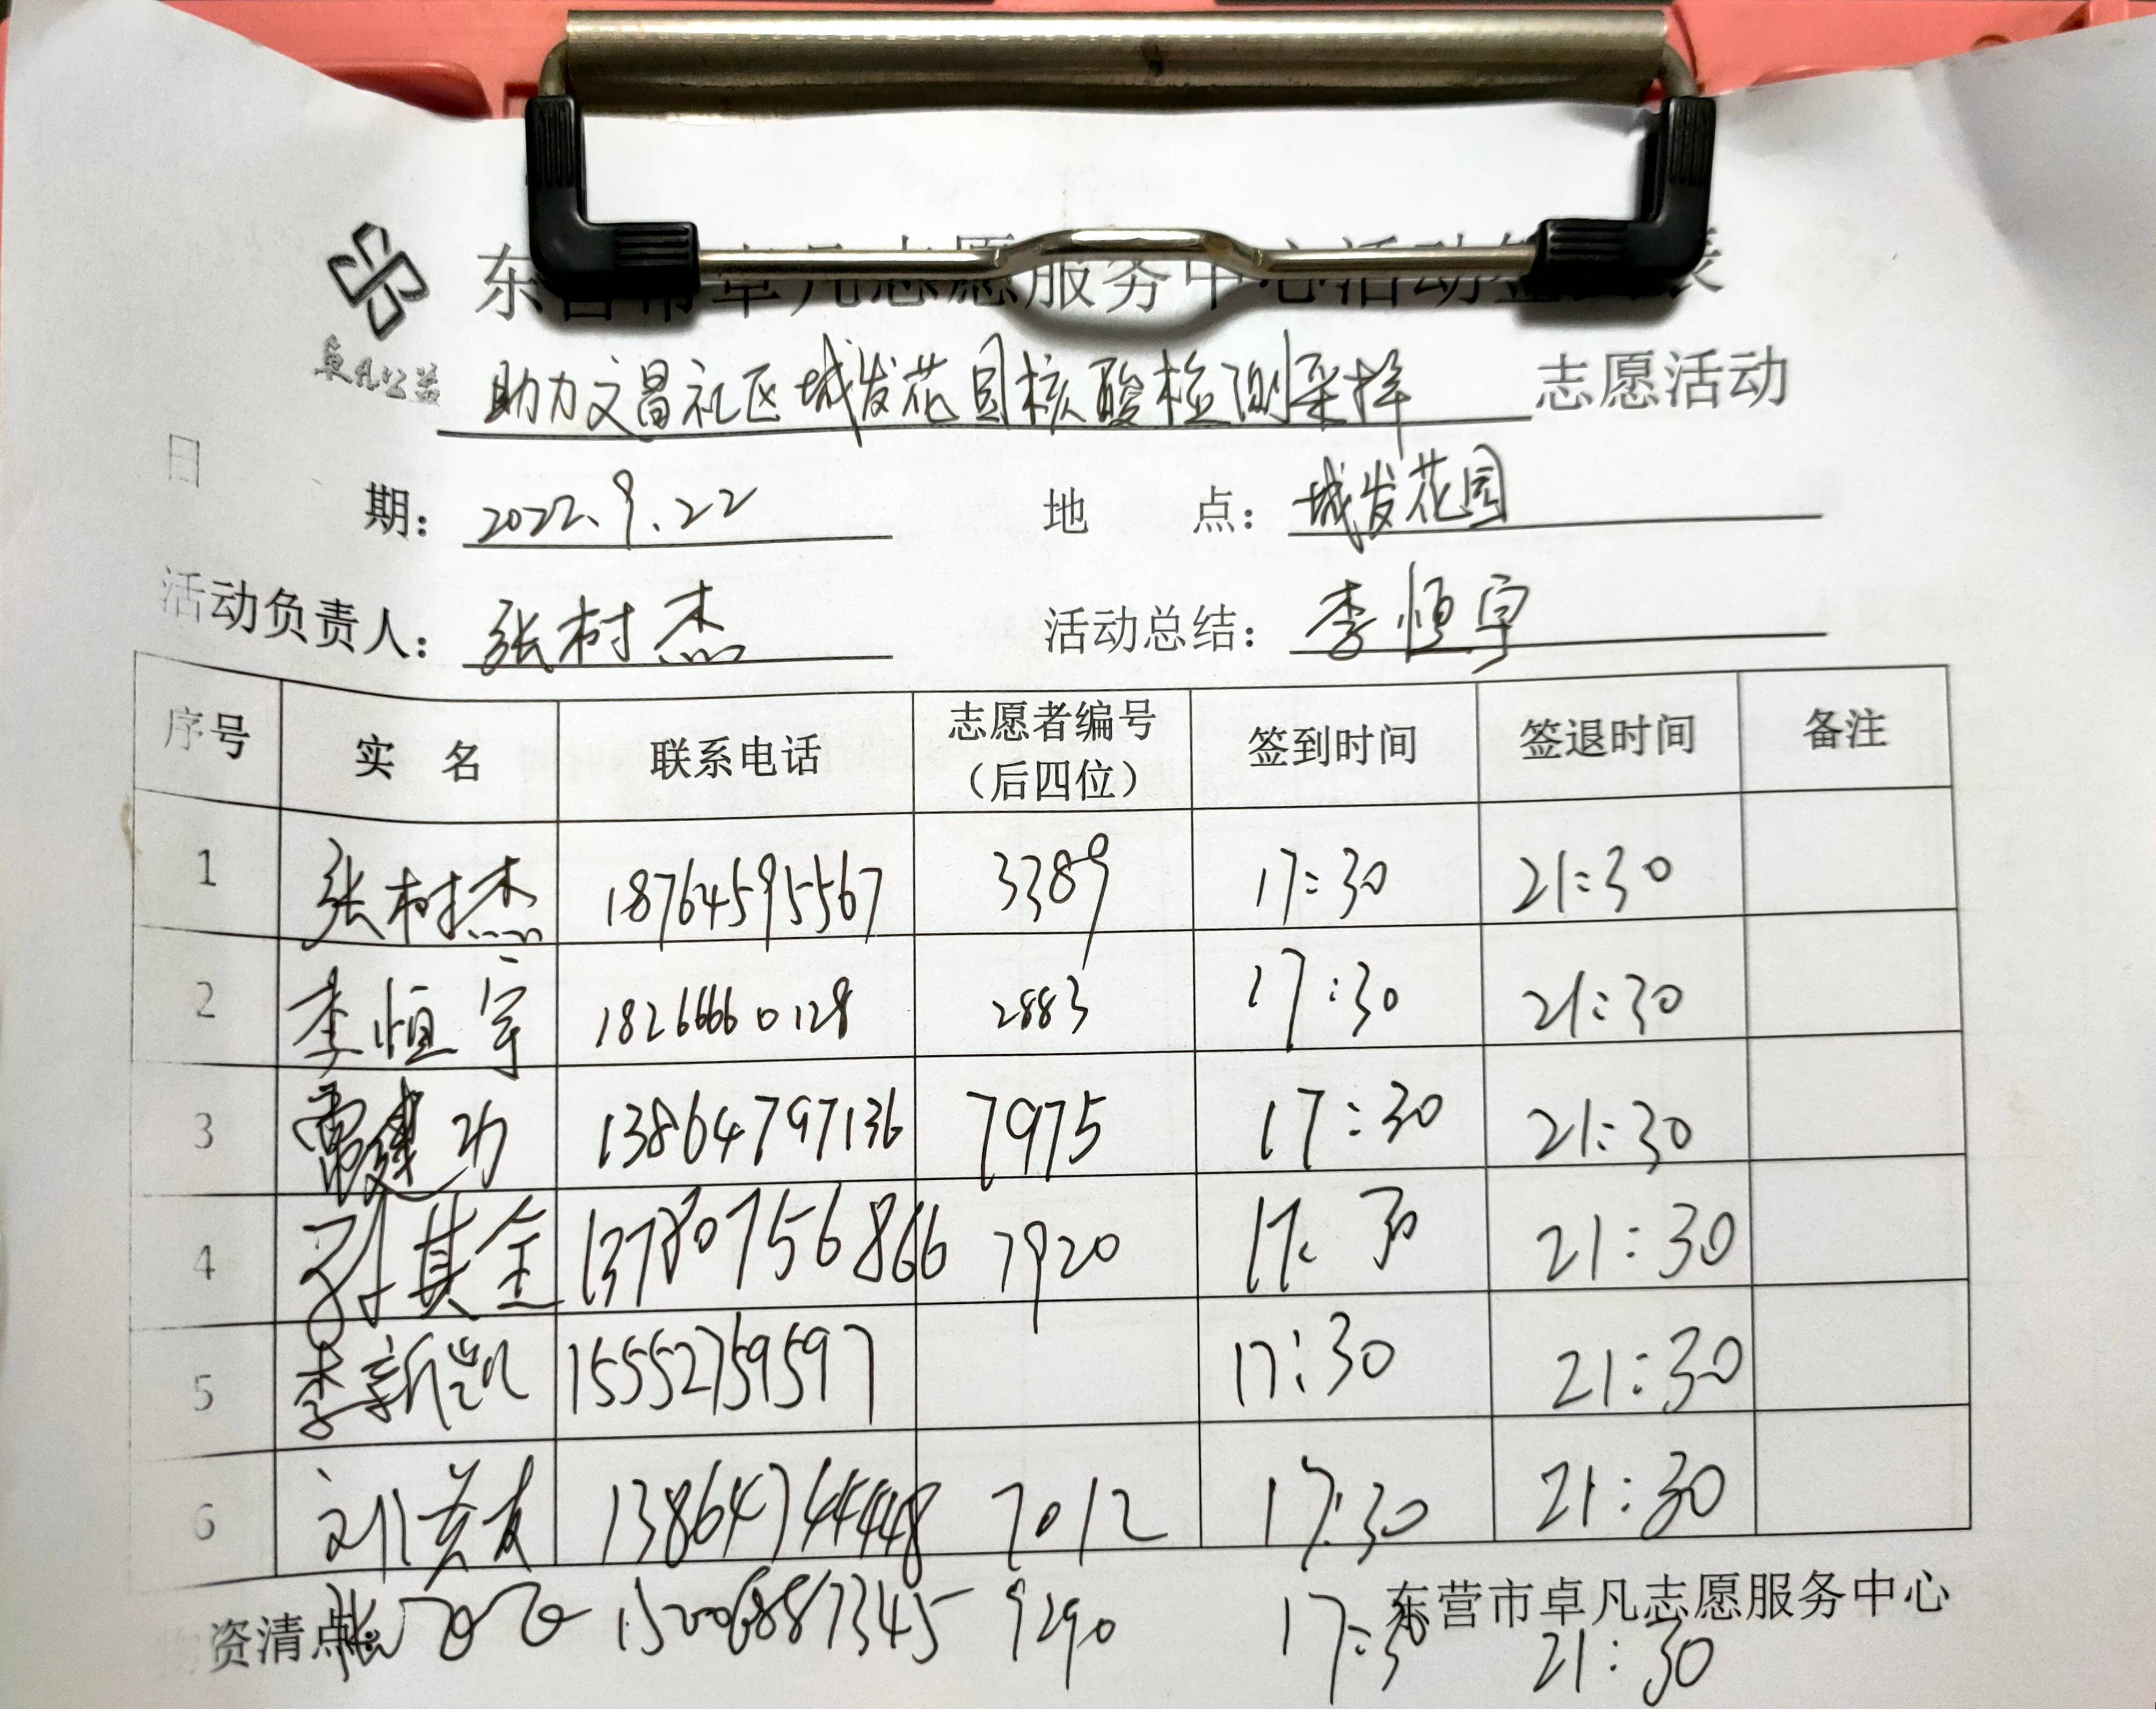 东营市卓凡志愿服务中心活动签到表
卓凡公益
助力文昌社区城发花园核酸检测采样 志愿活动
日期： 2022.9.22 地点： 城发花园
活动负责人： 张树杰 活动总结： 李恒宇
序号 实名 联系电话 志愿者编号（后四位） 签到时间 签退时间 备注
1 张树杰 18764595567 3389 17:30 21:30
2 李恒宇 18266660128 2883 17:30 21:30
3 雷建功 13864797136 7975 17:30 21:30
4 孙其金 13780756866 7920 17:30 21:30
5 李新凯 15552759597 17:30 21:30
6 刘美友 13864744448 7012 17:30 21:30
资清点： 东营市卓凡志愿服务中心
张 15006887345 9290 17:30 21:30